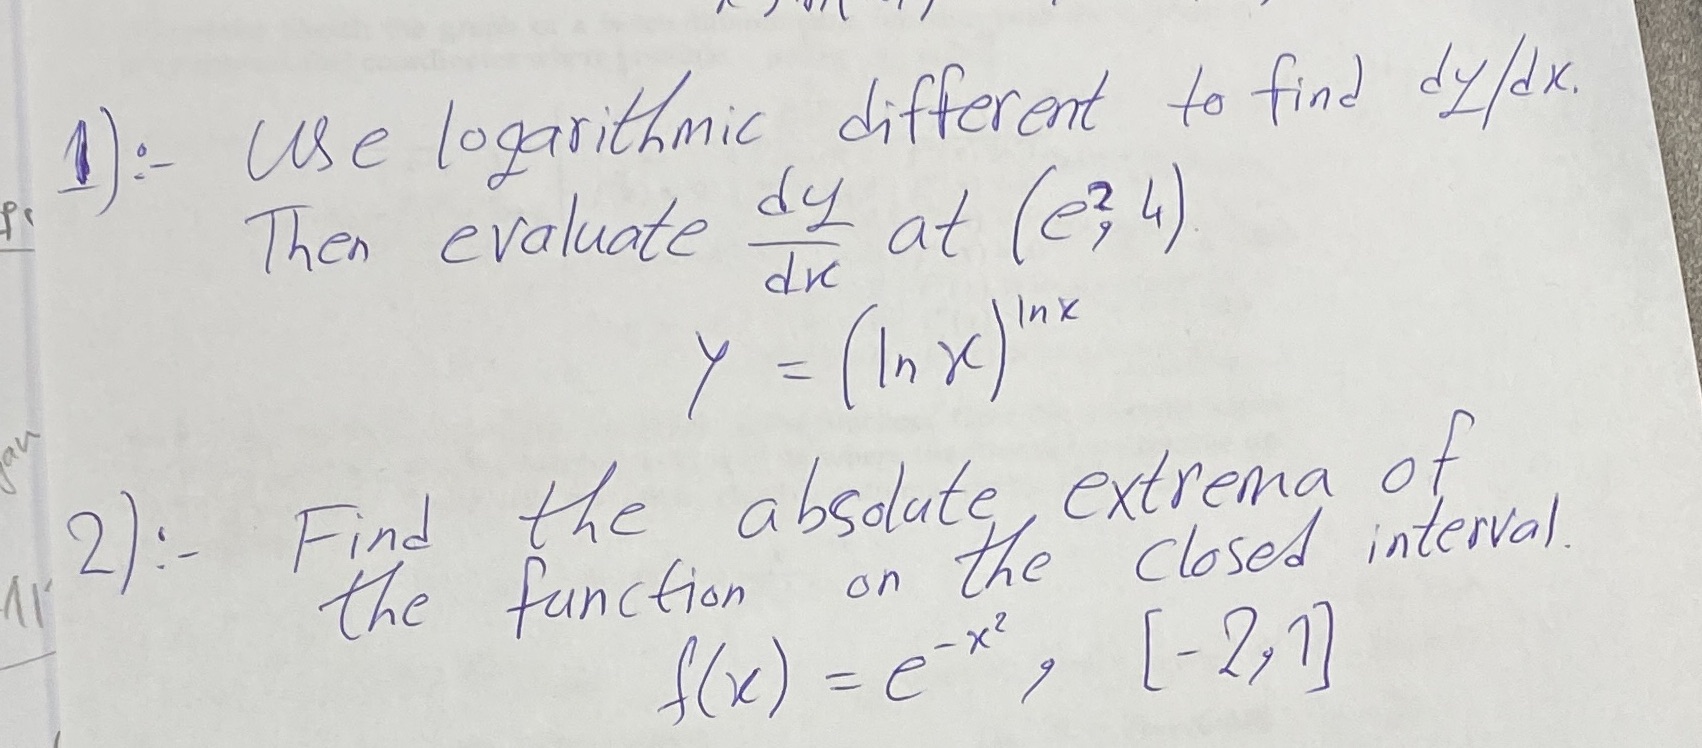 1):- Use logarithmic different to find dy/dx.
Then evaluate dy/dx at (e², 4).
y = (ln x)^ln x
2):- Find the absolute extrema of
the function on the closed interval.
f(x) = e^-x², [-2,1]